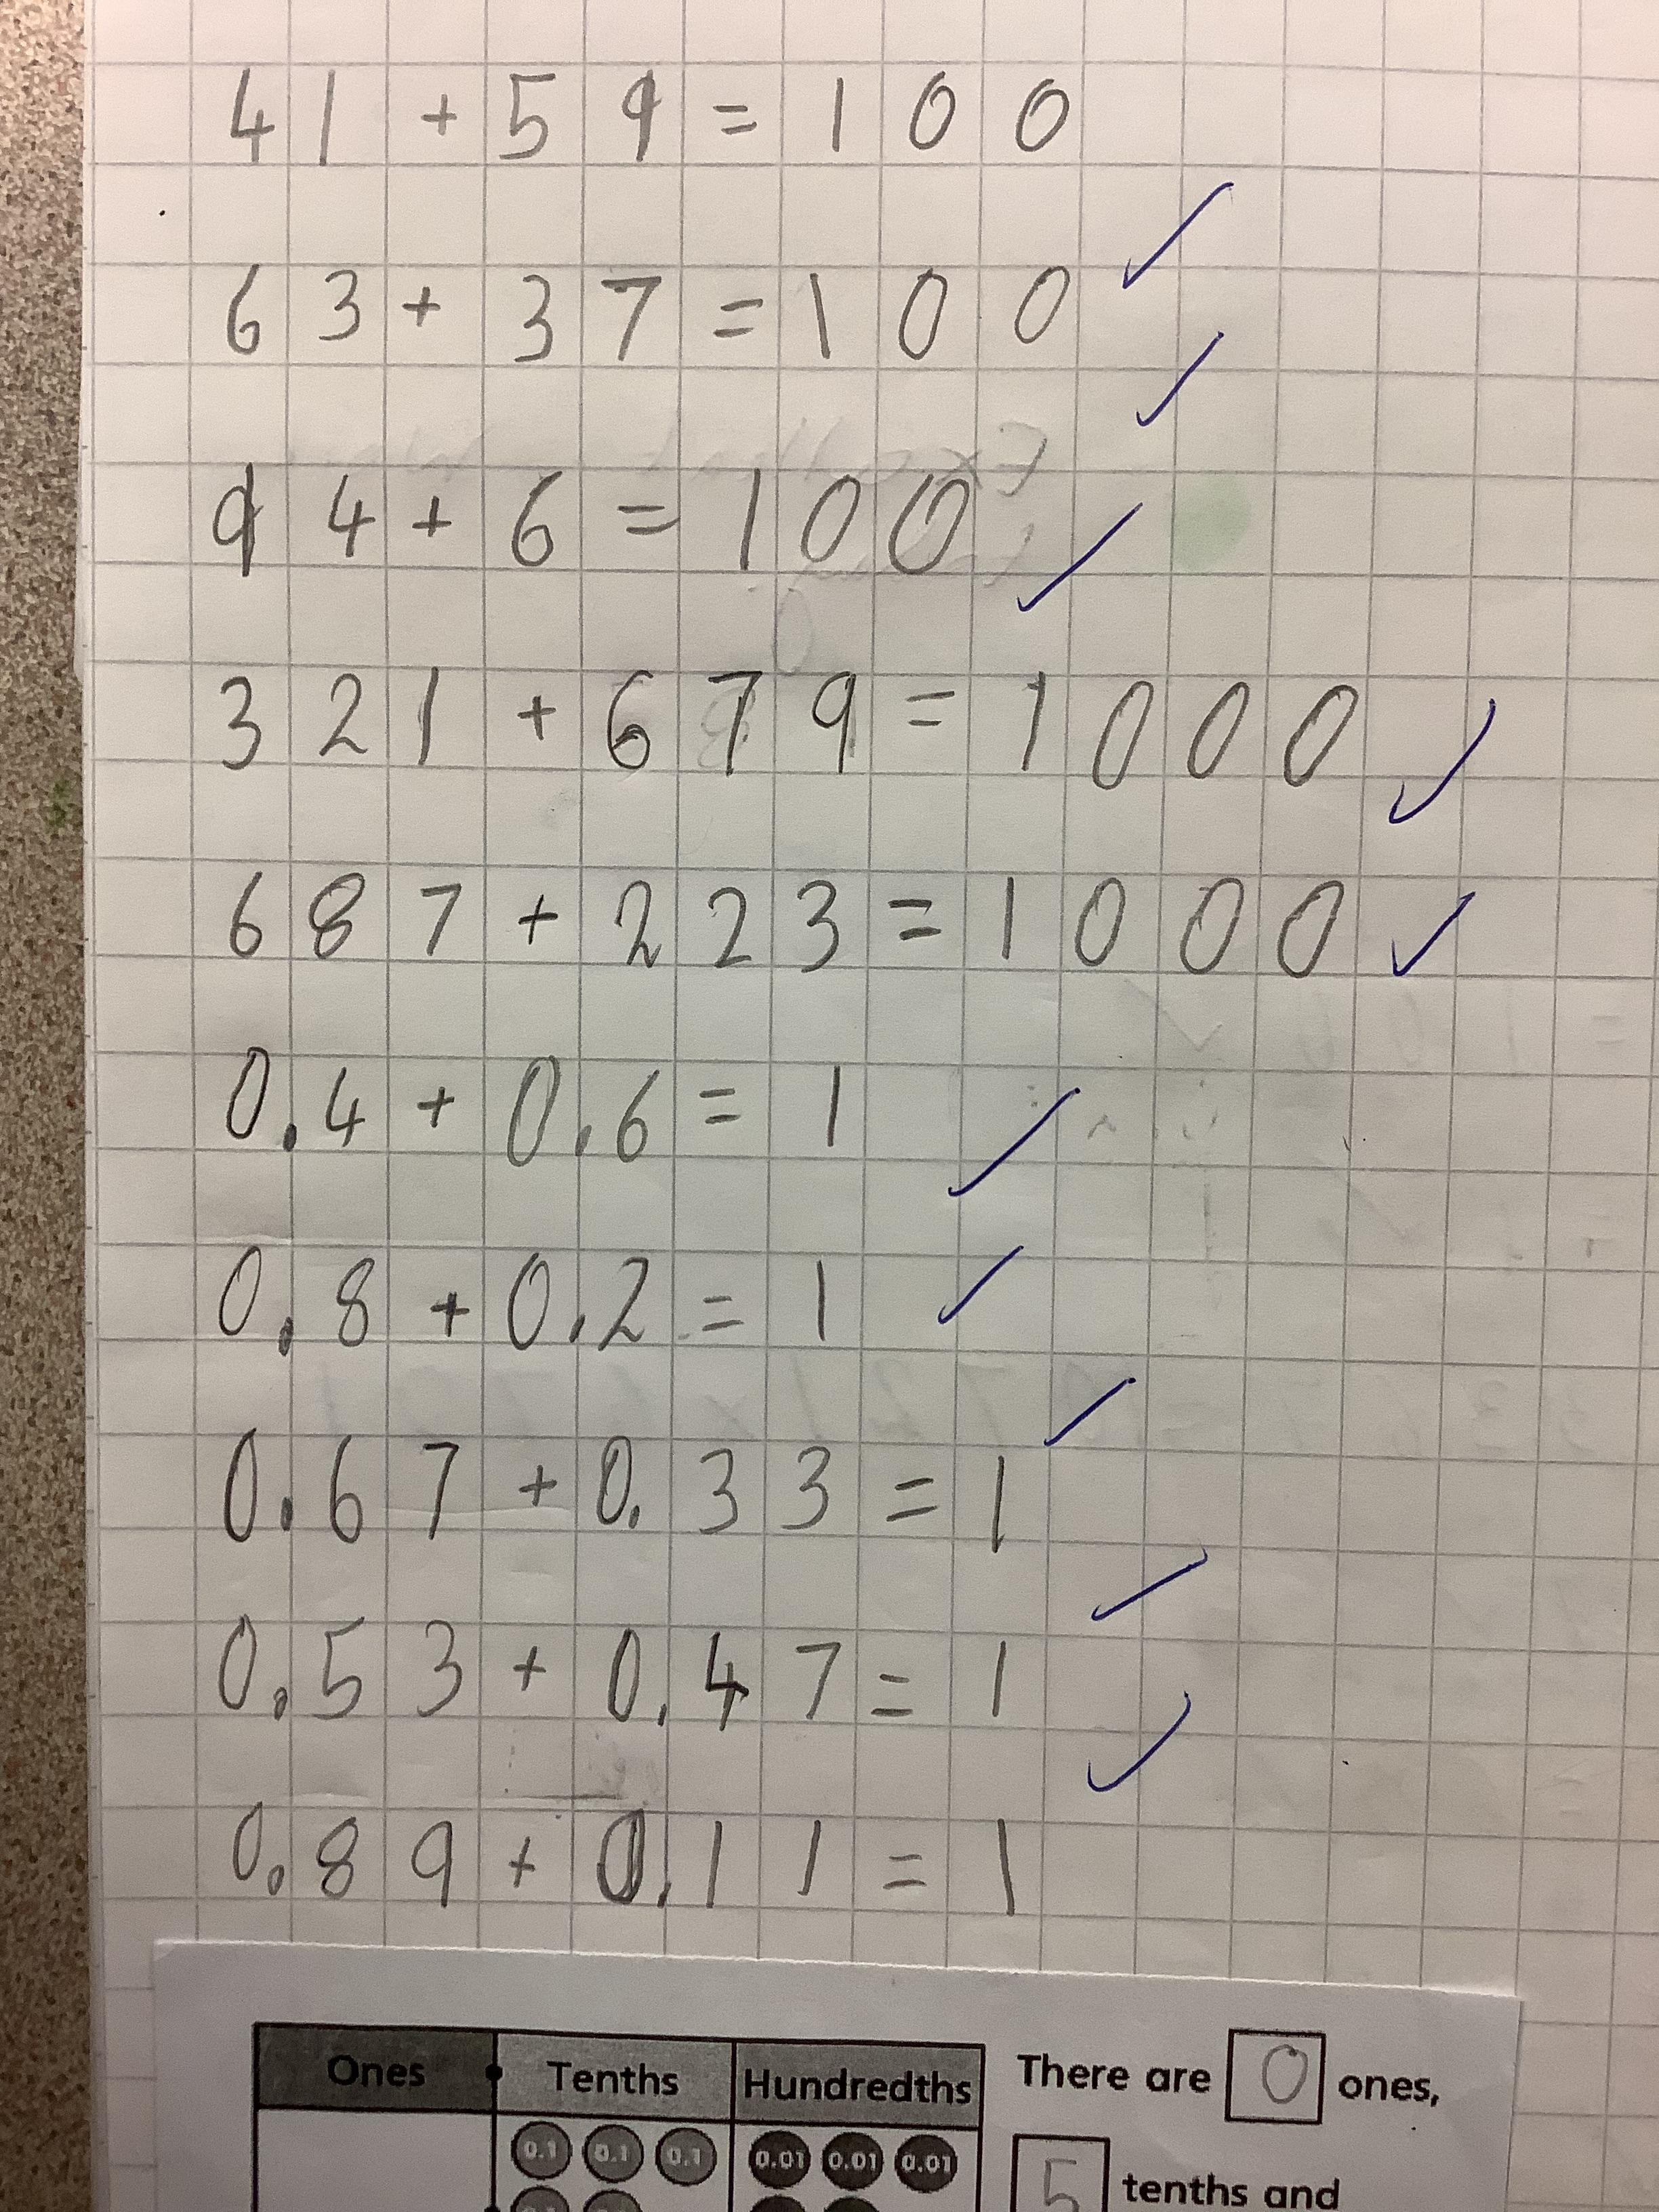 41 + 59 = 100
63 + 37 = 100
94 + 6 = 100
321 + 679 = 1000
687 + 223 = 1000
0.4 + 0.6 = 1
0.8 + 0.2 = 1
0.67 + 0.33 = 1
0.53 + 0.47 = 1
0.89 + 0.11 = 1
Ones Tenths Hundredths
There are 0 ones,
0.1 0.1 0.1 0.01 0.01 0.01
5 tenths and